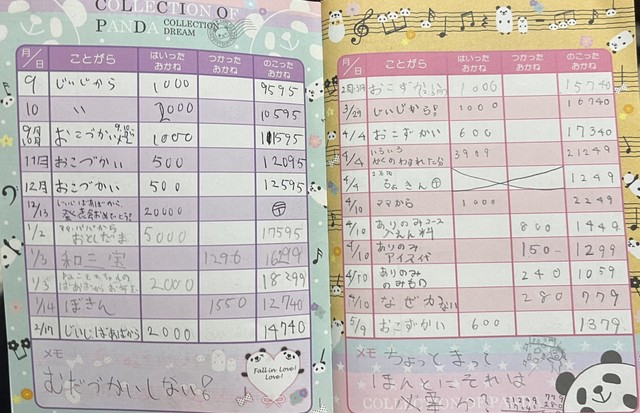 COLLECTION OF
PANDA COLLECTION DREAM
月/日 ことがら はいったおかね つかったおかね のこったおかね
9 じいじから 1000 9595
10 〃 1000 10595
おこづかい 1000 11595
11月 おこづかい 500 12095
12月 おこづかい 500 12595
12/13 20000 〒
1/2 おとしだま 5000 17595
1/3 和三宝 1296 16299
1/3 2000 18299
1/14 ぼきん 1550
2/17 じいじばあばから 2000 14740
メモ
むだづかいしない!
Fall in Love! Love!
月/日 ことがら はいったおかね つかったおかね のこったおかね
おこずかい 1000 15740
3/29 じいじから! 1000 16740
4/4 おこずかい 600 17340
4/4 3909 21249
4/4 ちょきん 〒 1249
4/10 ママから 1000 2249
4/10 ありのみコース 800 1449
4/10 ありのみアイス代 150 1299
4/10 ありのみのみもの 240 1059
4/10 なぜかない 280 779
5/9 おこずかい 600 1379
メモ
ちょっとまって
ほんとにそれは